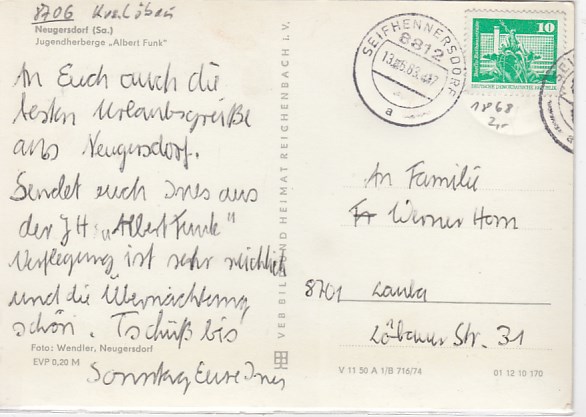 8706
Neugersdorf (Sa.)
Jugendherberge „Albert Funk"
An Euch auch die
besten Urlaubsgrüße
aus Neugersdorf.
Sendet euch Ines aus
der JH „Albert Funk"
Verpflegung ist sehr reichlich
und die Übernachtung
schön. Tschüß bis
Sonntag Eure Ines
Foto: Wendler, Neugersdorf
EVP 0,20 M
VEB BILD UND HEIMAT REICHENBACH i. V.
SEIFHENNERSDORF
8812
a
10
DEUTSCHE DEMOKRATISCHE REPUBLIK
1868
2,-
An Familie
Werner Horn
8701 Lauba
Löbauer Str. 31
V 11 50 A 1/B 716/74
01 12 10 170